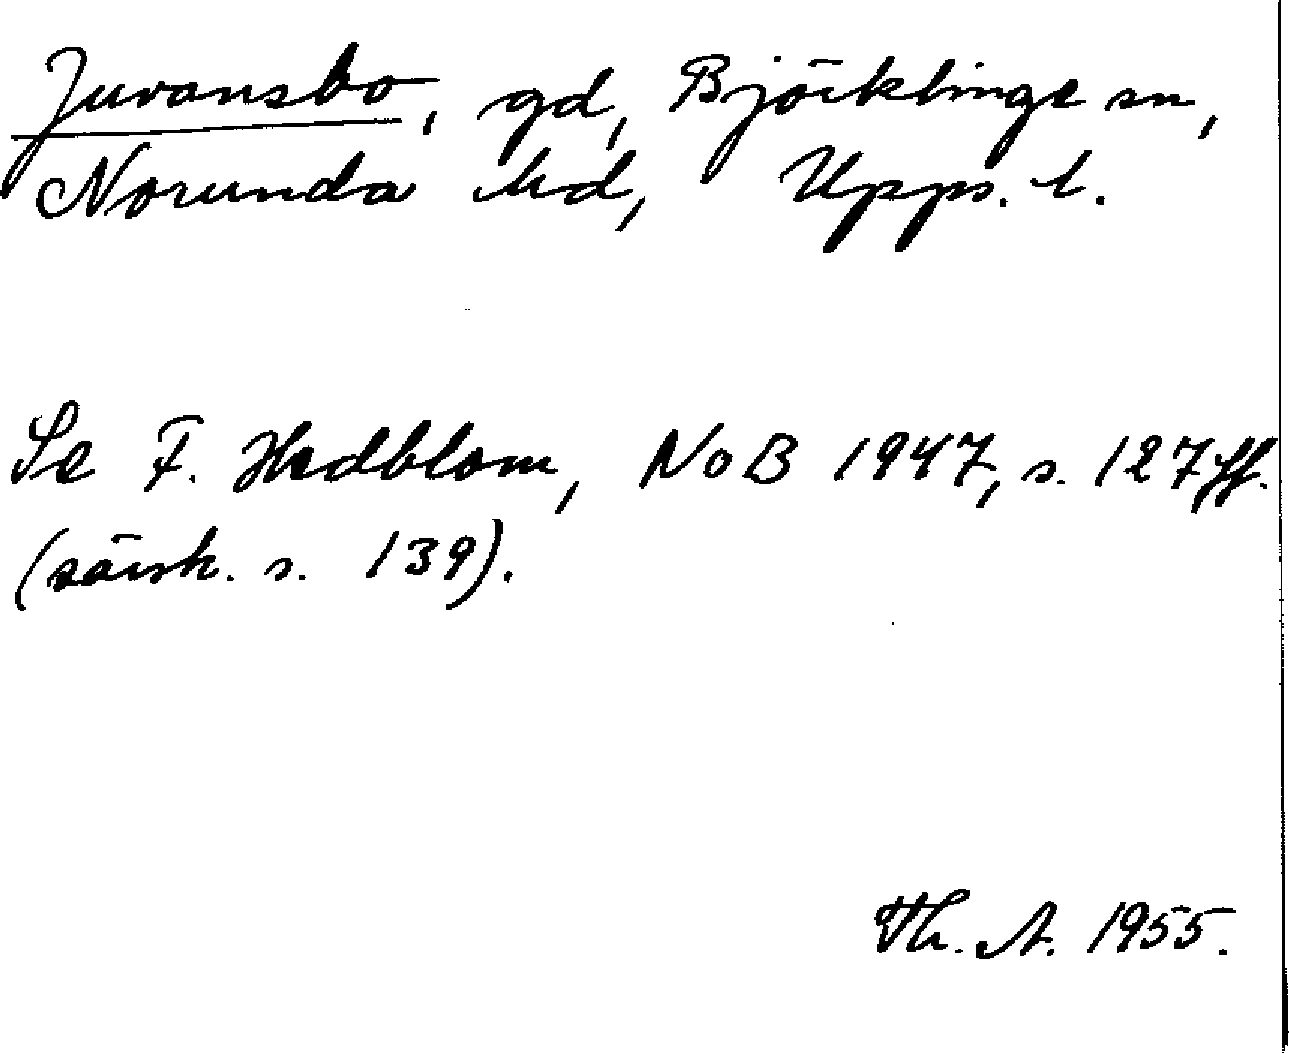 Juvansbo, gd, Björklinge sn,
Norunda hd, Upps. l.
Se F. Hedblom, NoB 1947, s. 127 ff.
(särsk. s. 139).
Th. A. 1955.